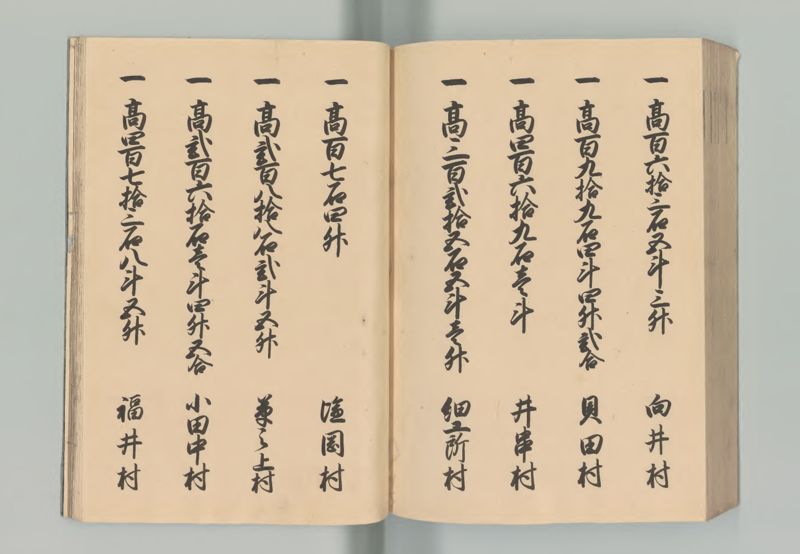 一 高百六拾三石五斗三升 向井村
一 高百九拾九石四斗四升弐合 貝田村
一 高四百六拾九石壱斗 井串村
一 高三百弐拾五石五斗壱升 細工所村
一 高百七石四升 塩岡村
一 高弐百八拾八石弐斗五升 草之上村
一 高弐百六拾石壱斗四升五合 小田中村
一 高四百七拾三石八斗五升 福井村